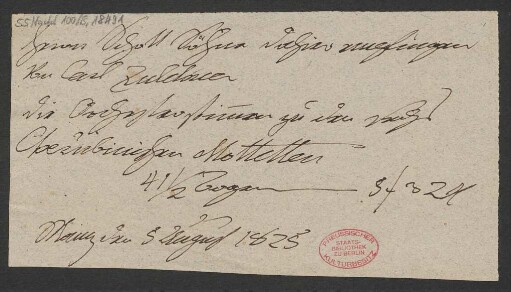 55 Nachl 100/B, 18491
Herrn Schott Söhne dahier empfingen
Von Carl Zulehner
die Orchesterstimmen zu den sechs
Cherubinischen Mottetten
41/2 Bogen
Mainz den 5 August 1825
PREUSSISCHER
STAATS-
BIBLIOTHEK
ZU BERLIN
KULTURBESITZ